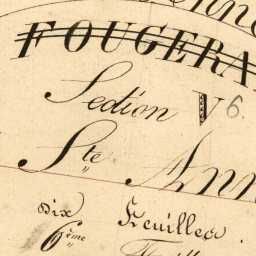 FOUGERA
Section V 6.
Ste Ann
Dix Feuilles.
6ème